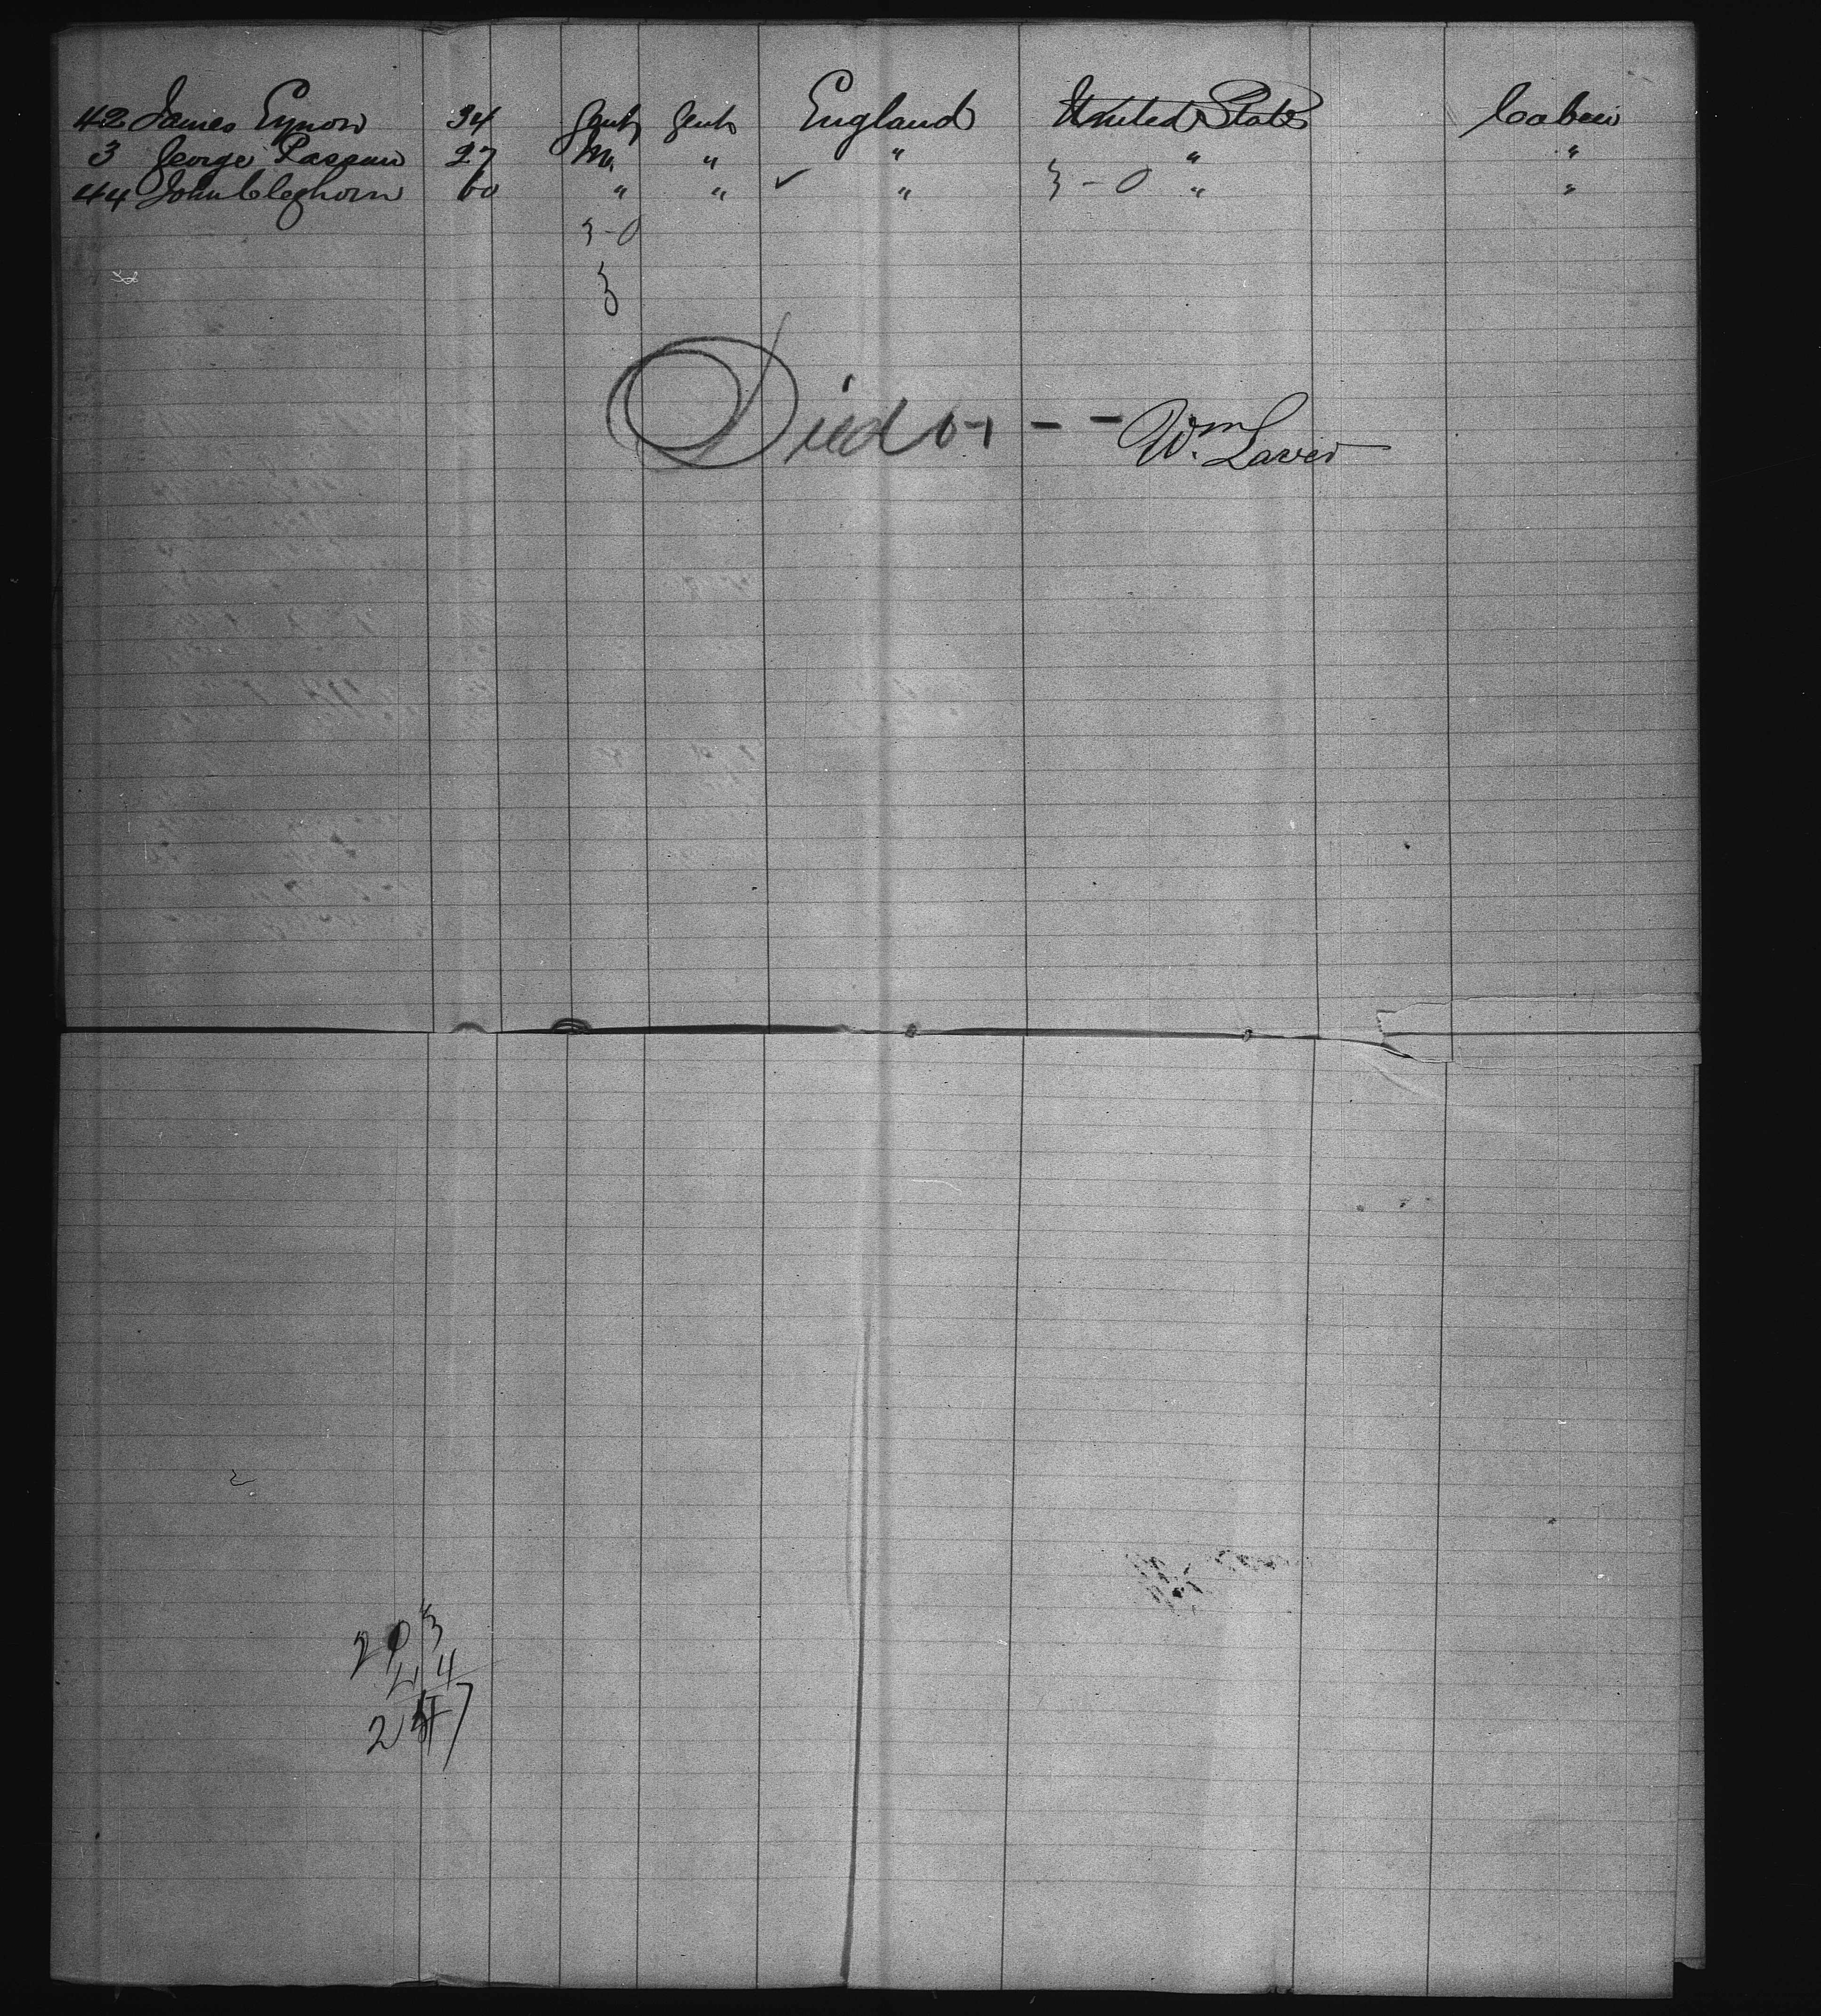 42 James Eynon 34 Gent Gent England United States Cabin
3 George Passau 27 M. " " " "
44 John Cleghorn 60 " " ✓ " 3-0 " "
3-0
3
Died 1 - - Wm Laver
203
44
247